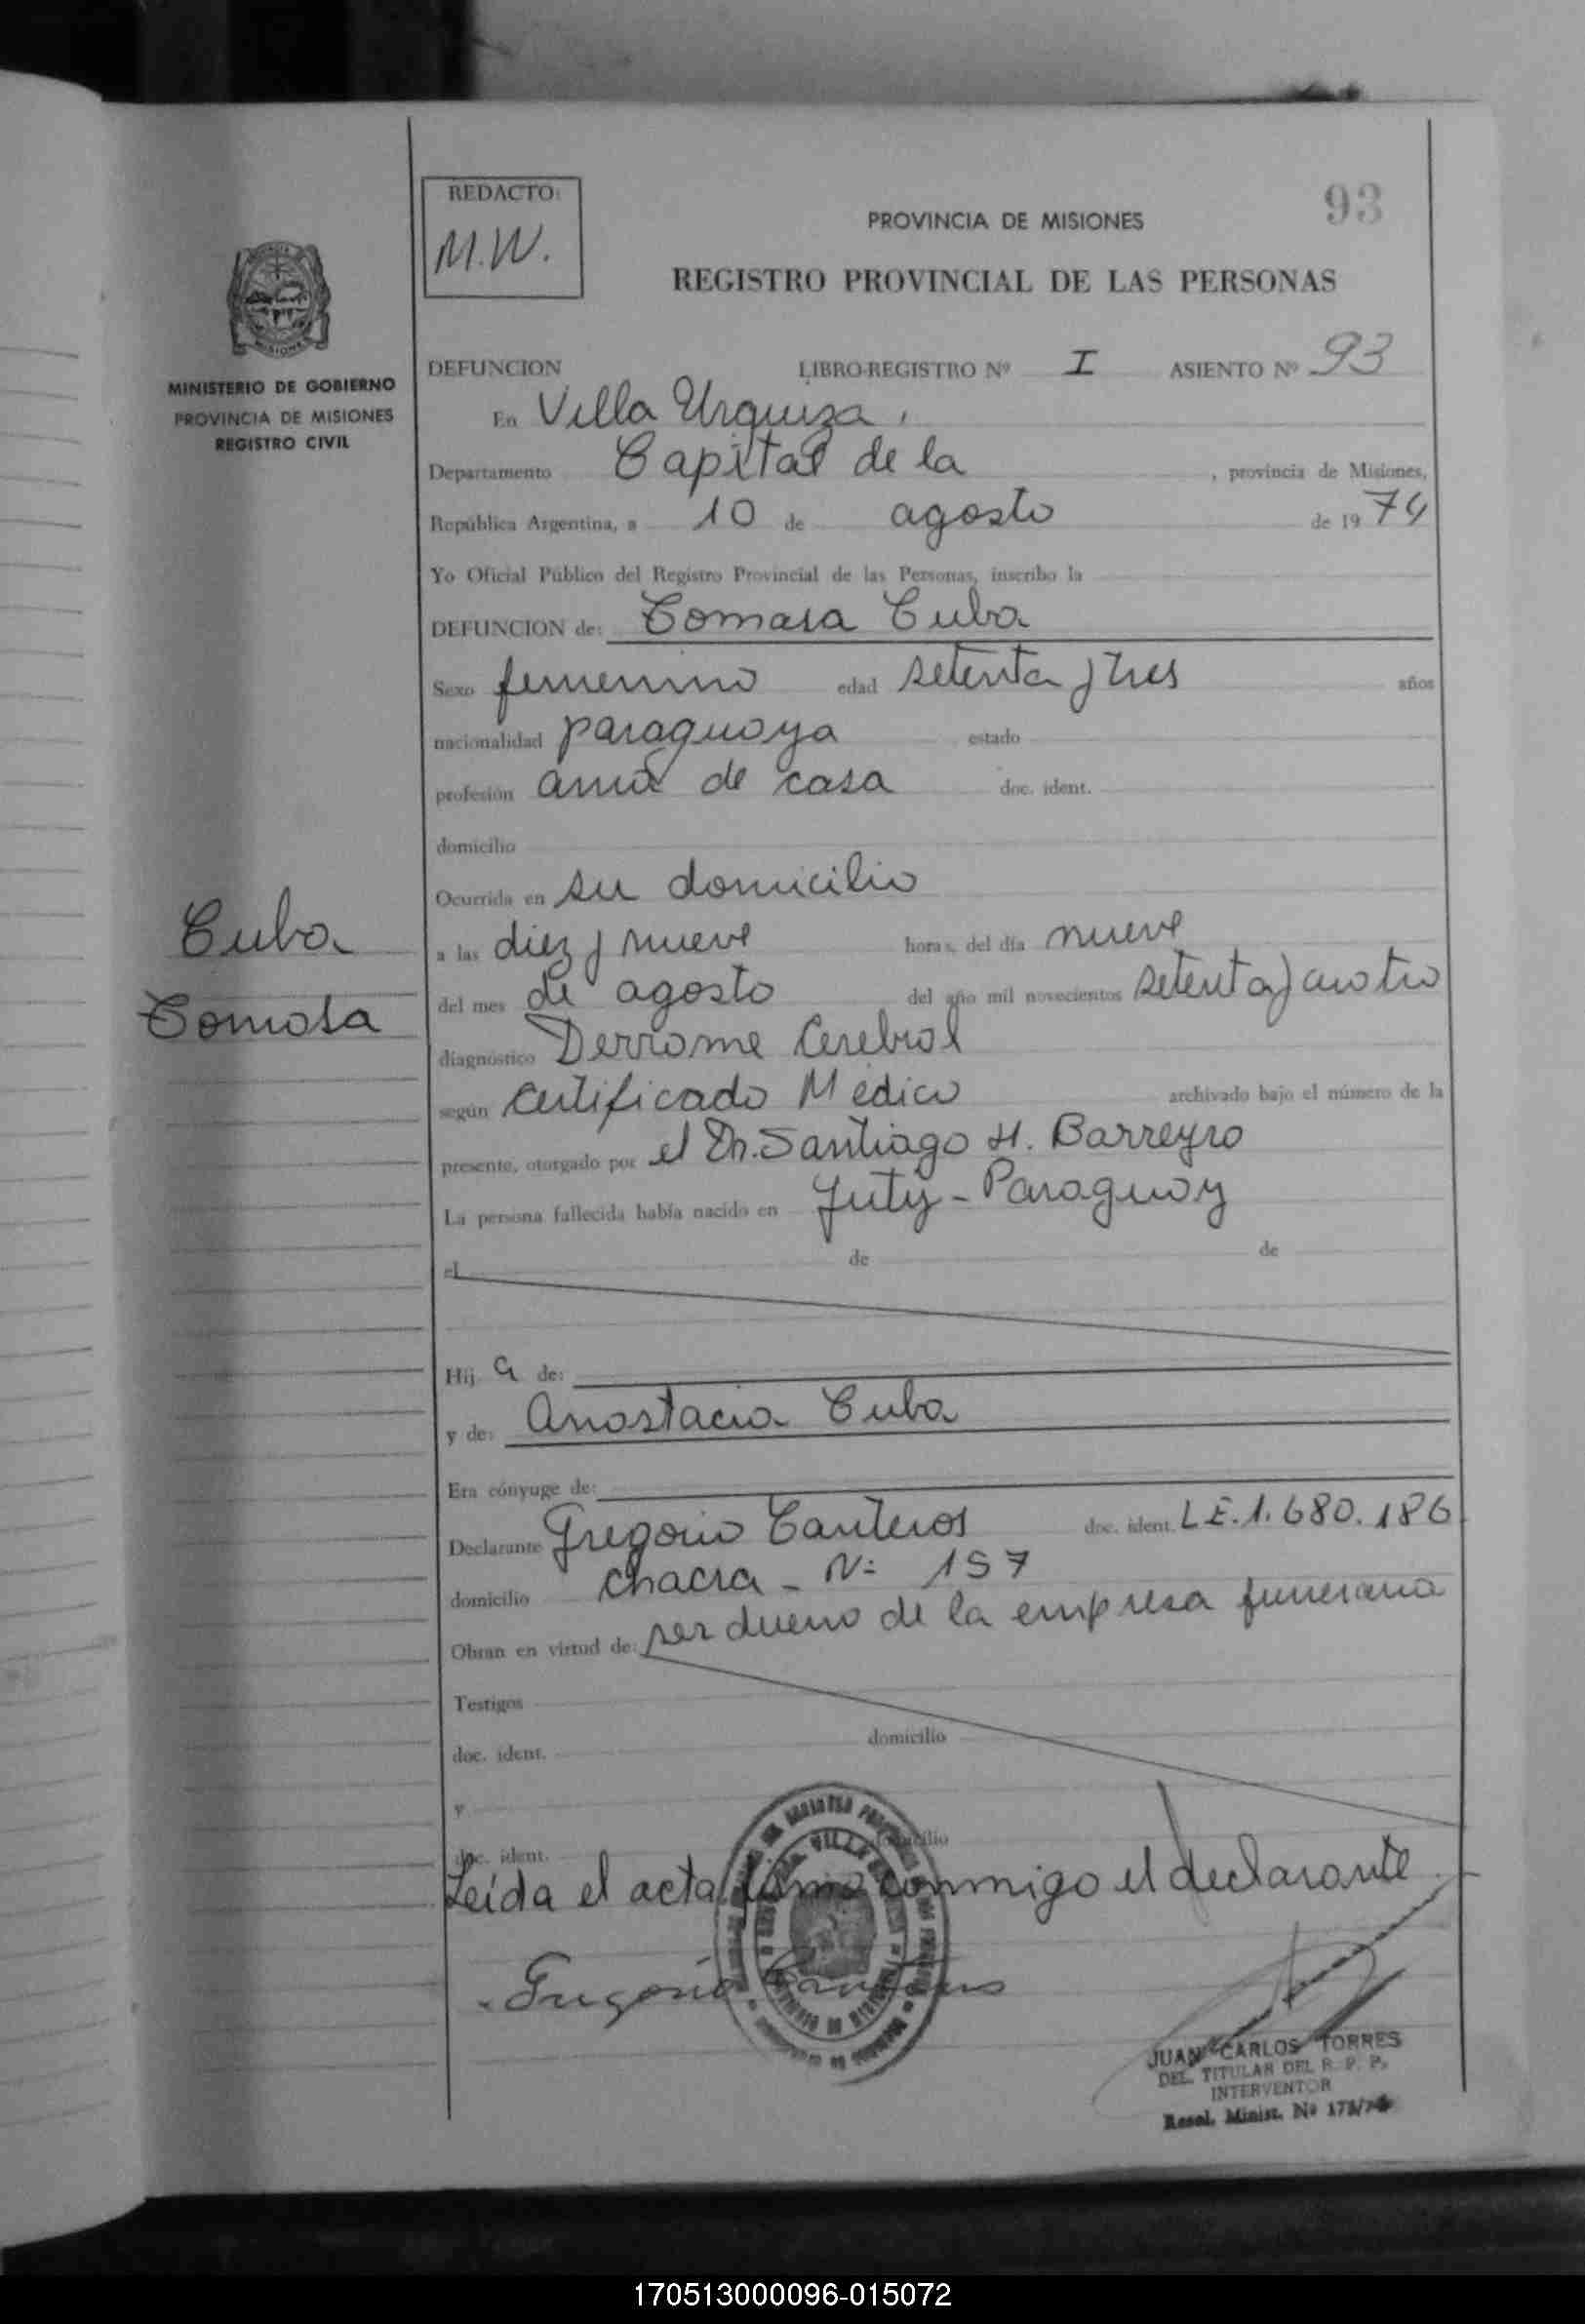 REDACTO:
M.W.
93
PROVINCIA DE MISIONES
REGISTRO PROVINCIAL DE LAS PERSONAS
MISIONES
MINISTERIO DE GOBIERNO
PROVINCIA DE MISIONES
REGISTRO CIVIL
DEFUNCION LIBRO-REGISTRO Nº I ASIENTO Nº 93
En Villa Urquiza,
Departamento Capital de la , provincia de Misiones,
República Argentina, a 10 de agosto de 19 74
Yo Oficial Público del Registro Provincial de las Personas, inscribo la
DEFUNCION de: Tomasa Cuba
Sexo femenino edad setenta y tres años
nacionalidad paraguaya estado
profesión ama de casa doc. ident.
domicilio
Ocurrida en su domicilio
Cuba
Tomasa
a las diez y nueve horas, del día nueve
del mes de agosto del año mil novecientos setenta y cuatro
diagnóstico Derrame Cerebral
según Certificado Médico archivado bajo el número de la
presente, otorgado por el Dr. Santiago H. Barreyro
La persona fallecida había nacido en Yuty - Paraguay
el de de
Hij a de:
y de: Anastacia Cuba
Era cónyuge de:
Declarante Gregorio Canteros doc. ident. L E. 1. 680. 186
domicilio chacra - Nº 157
Obran en virtud de: ser dueño de la empresa funeraria
Testigos
doc. ident. domicilio
y
doc. ident. domicilio
Leída el acta firma conmigo el declarante
Gregorio Canteros
JUAN CARLOS TORRES
DEL. TITULAR DEL R. P. P.
INTERVENTOR
Resol. Minist. Nº
170513000096-015072